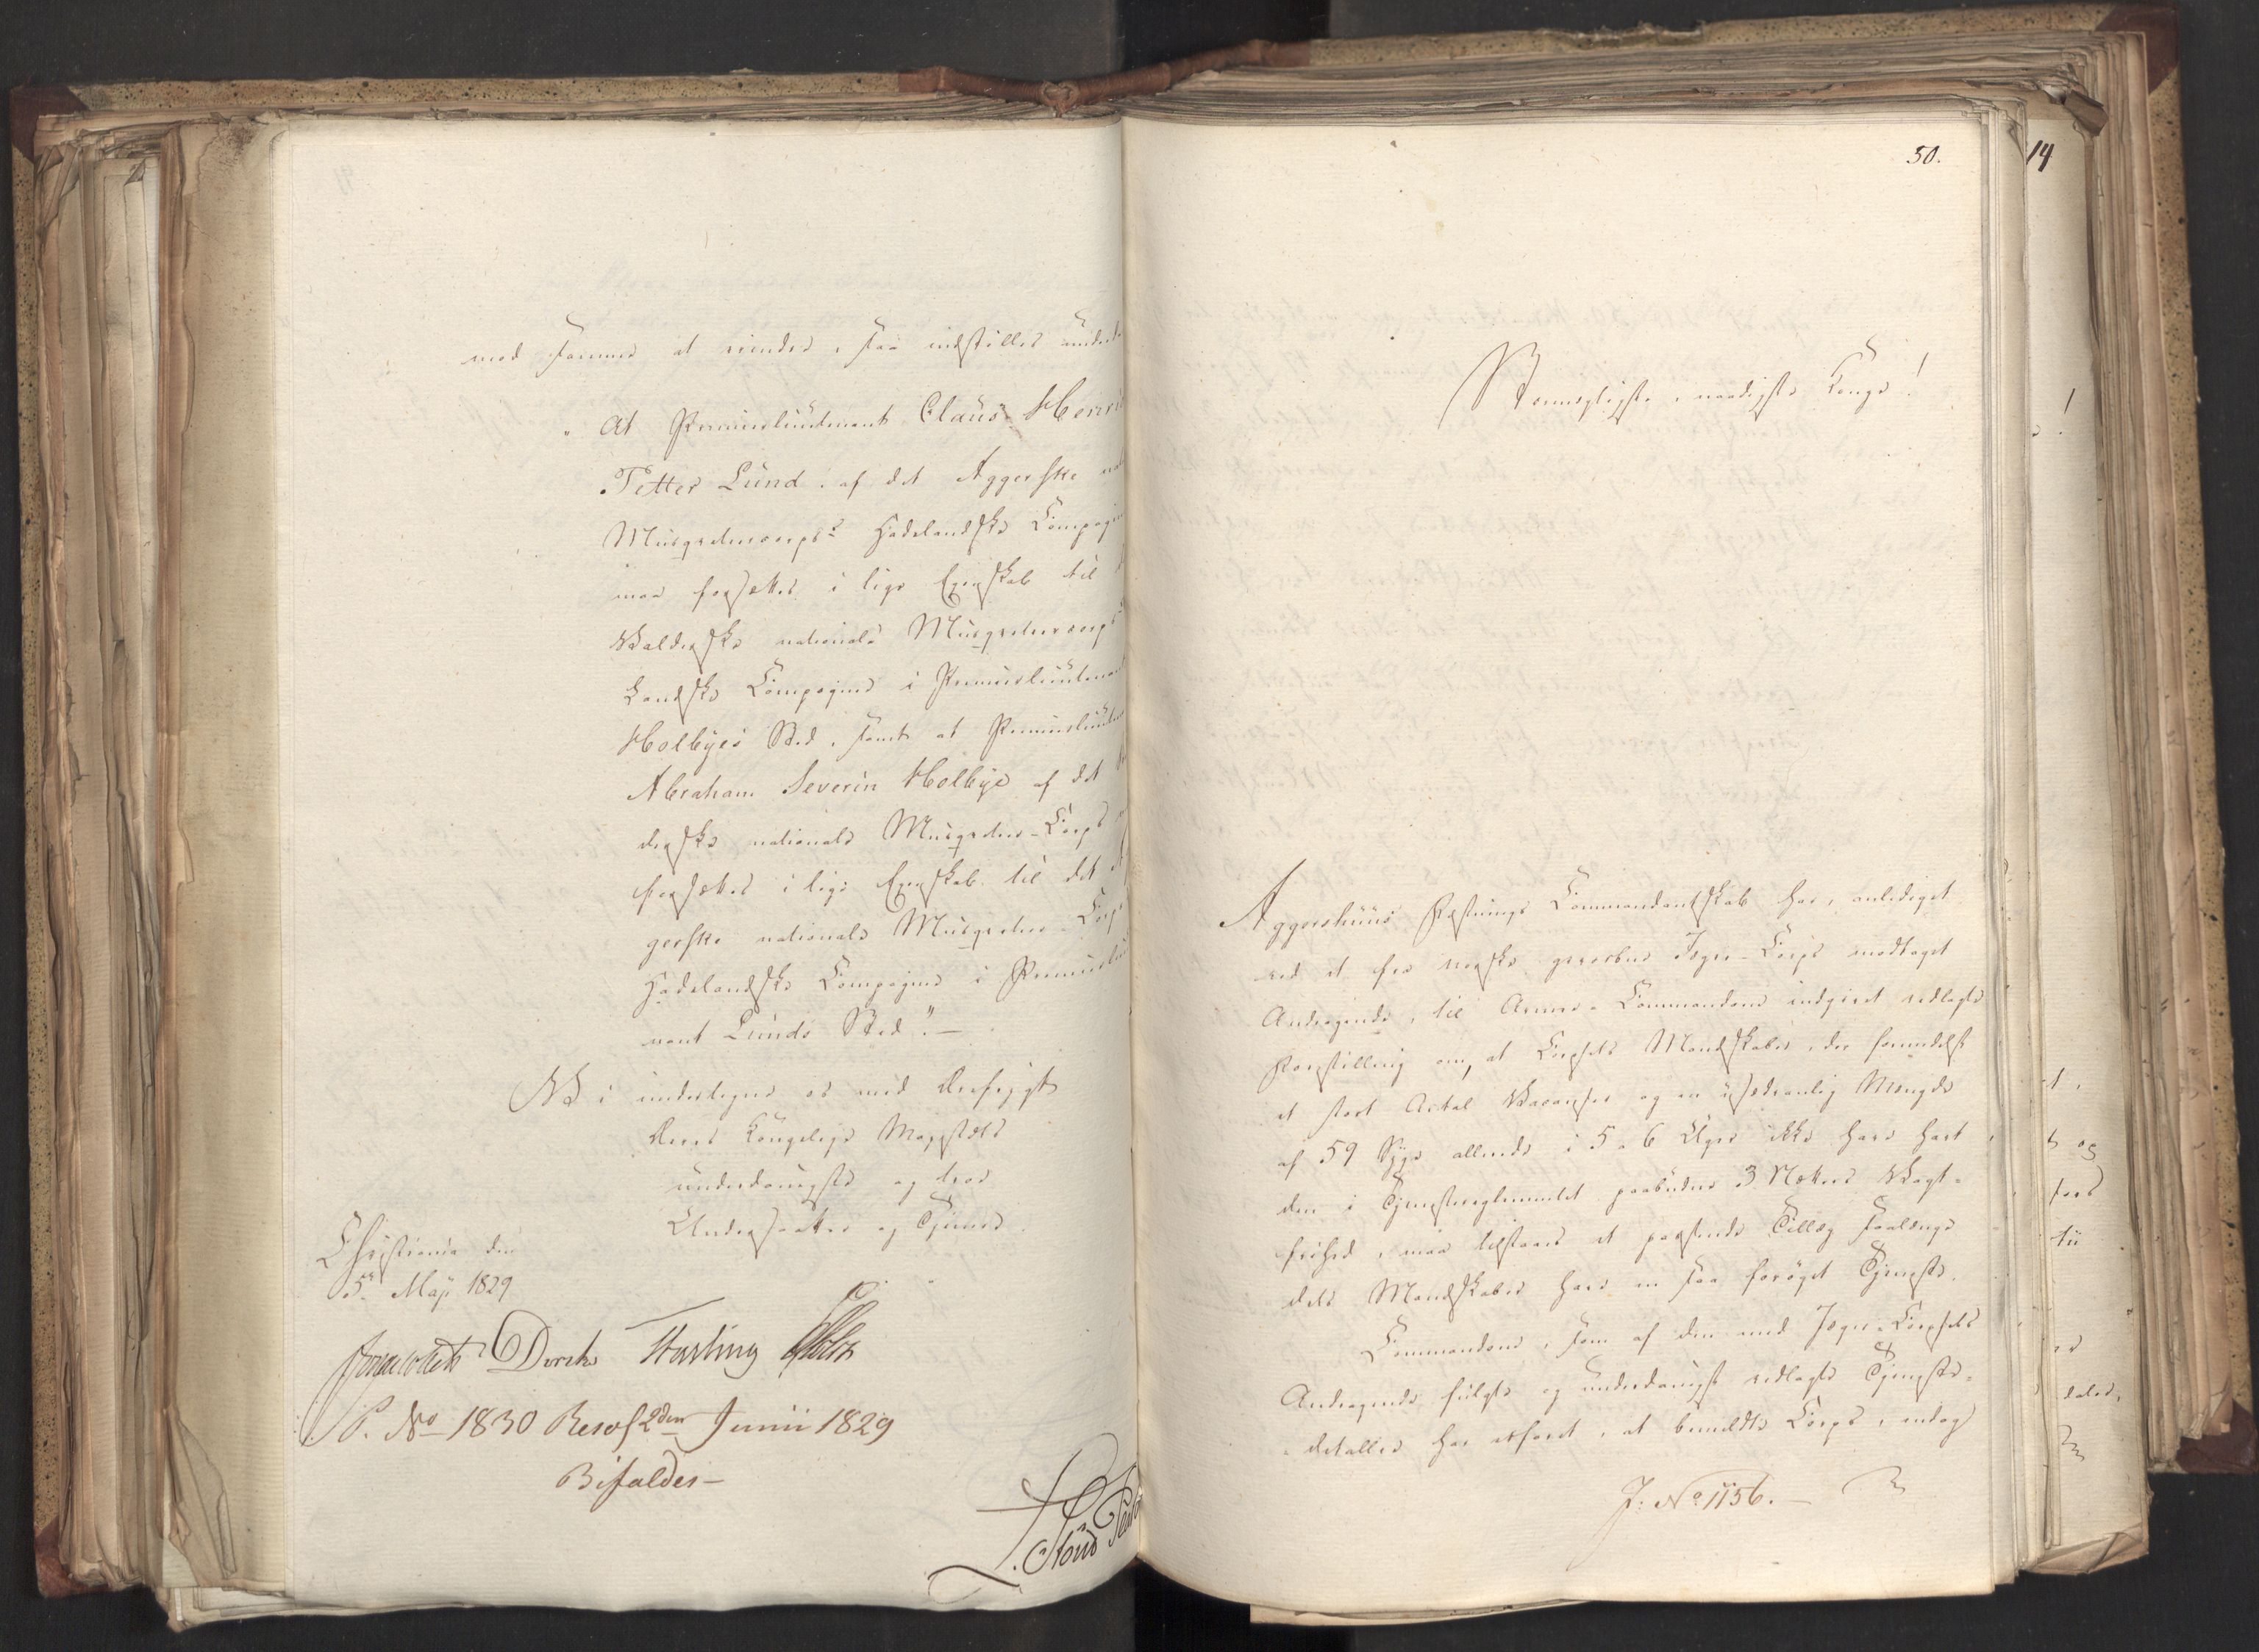 med Samme at erindre, saa indstilles underd
"At Premierlieutenant Claus Henri
Tetter Lund af det Aggerske na
Musqueteercorps's Hadelandske Compagni
maa forsættes i lige Egenskab til d
Valderske nationale Musqueteercorps
Landske Compagnie i Premierlieutenant
Holbyes Sted, samt at Premierlieuten
Abraham Severin Holbye af det
derske nationale Musqueteer-Corps
forsættes i lige Egenskab til det A
gerske nationale Musqueteer-Corps
Hadelandske Compagnie i Premierlieu
nant Lunds Sted."—
Vi undertegne os med Dyb frygt
Deres Kongelige Majestæts
underdanigste og troe
Undersaatter og Tjenere.
Christiania den
5te Maji 1829
Diriks
P. No 1830 Resol 2den Junii 1829
Bifaldes—
50.
Stormægtigste, naadigste Konge!
Aggershuus Fæstnings Commandantskab har, anlediget
ved et fra norske gevorbne Jæger-Corps modtaget
Andragende, til Armee-Commandoen indgivet vedlagte
Forestilling om, at Corpsets Mandskaber, der formedelst
et stort Antal Vacanser og en usædvanlig Mængde
af 59 Syge allerede i 5 a 6 Uger ikke have havt
den i Tjenstreglementet paabudne 3 Nætters Vagt-
frihed, maa tilstaaes et passende Tillæg saalænge
dets Mandskaber have en saa forøget Tjeneste.
Commandoen, som af den med Jæger-Corpsets
Andragende fulgte og underdanigst vedlagte Tjeneste-
detaller har erfaret, at bemeldte Corps, endog
J: No 1156.—
14